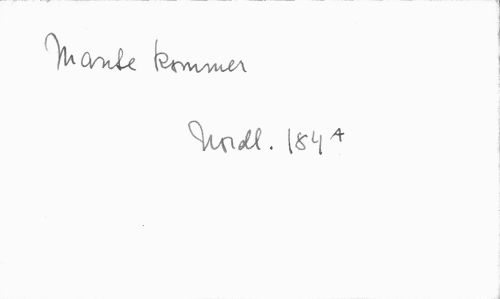 Manse kommer
Nordl. 184 A